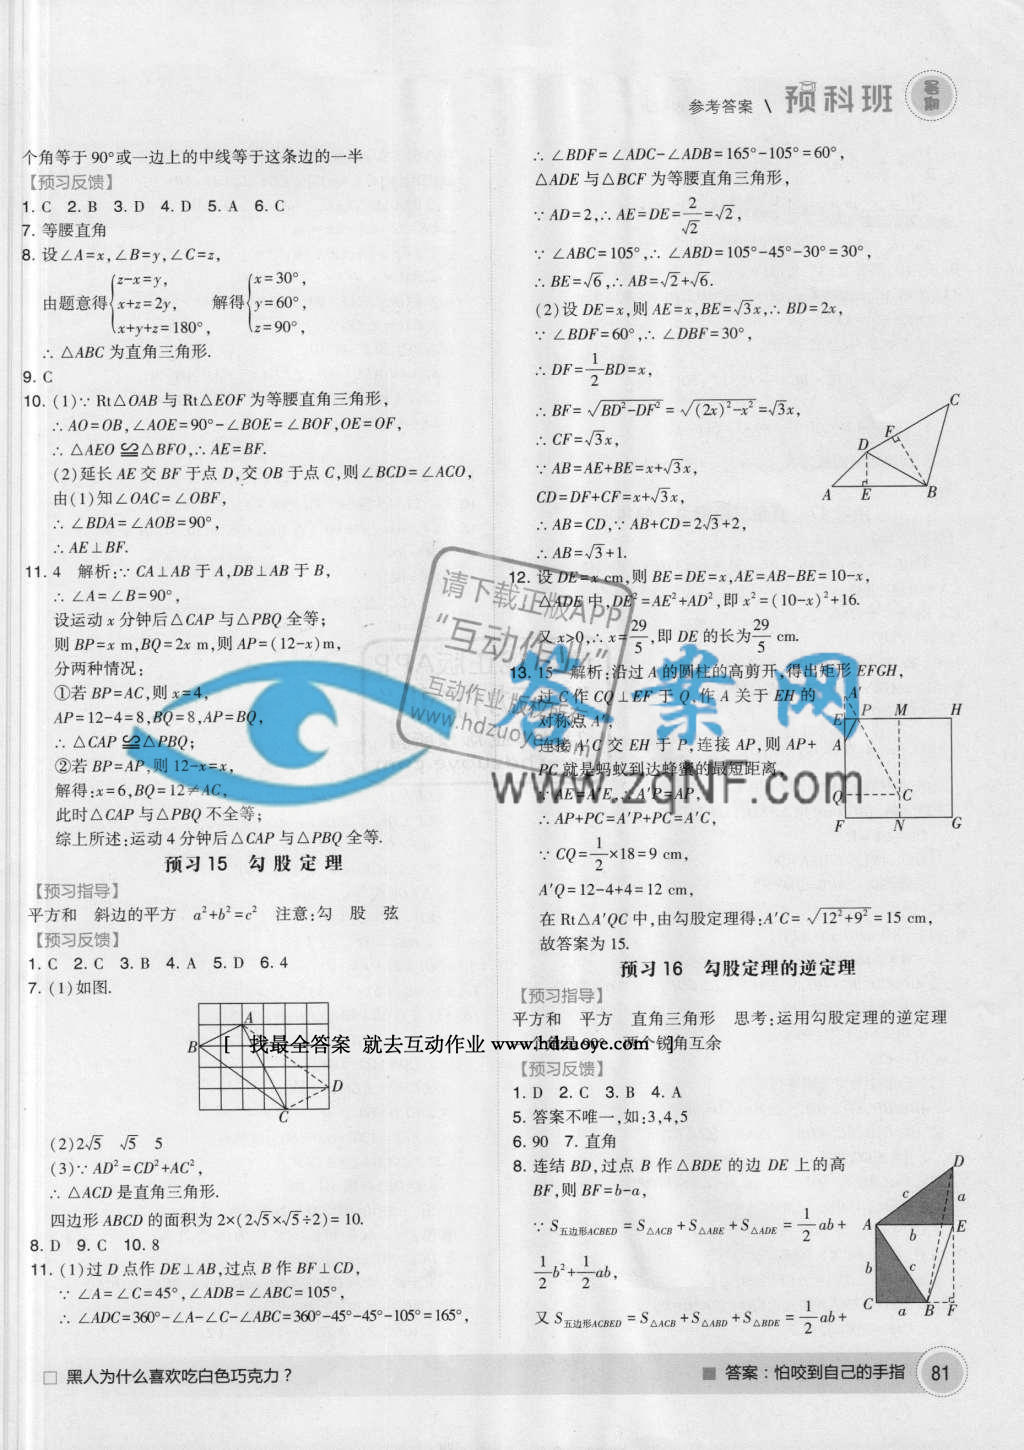 参考答案 \ 预科班 暑期
个角等于90°或一边上的中线等于这条边的一半
【预习反馈】
1. C 2. B 3. D 4. D 5. A 6. C
7. 等腰直角
8. 设∠A=x,∠B=y,∠C=z,
由题意得{z-x=y, x+z=2y, x+y+z=180°, 解得{x=30°, y=60°, z=90°,
∴ △ABC 为直角三角形.
9. C
10. (1)∵ Rt△OAB 与 Rt△EOF 为等腰直角三角形,
∴ AO=OB,∠AOE=90°-∠BOE=∠BOF,OE=OF,
∴ △AEO≌△BFO,∴ AE=BF.
(2)延长 AE 交 BF 于点 D,交 OB 于点 C,则∠BCD=∠ACO,
由(1)知∠OAC=∠OBF,
∴ ∠BDA=∠AOB=90°,
∴ AE⊥BF.
11. 4 解析:∵ CA⊥AB 于 A,DB⊥AB 于 B,
∴ ∠A=∠B=90°,
设运动 x 分钟后△CAP 与△PBQ 全等;
则 BP=x m,BQ=2x m,则 AP=(12-x)m,
分两种情况:
①若 BP=AC,则 x=4,
AP=12-4=8,BQ=8,AP=BQ,
∴ △CAP≌△PBQ;
②若 BP=AP,则 12-x=x,
解得:x=6,BQ=12≠AC,
此时△CAP 与△PBQ 不全等;
综上所述:运动 4 分钟后△CAP 与△PBQ 全等.
预习15 勾股定理
【预习指导】
平方和 斜边的平方 a²+b²=c² 注意:勾 股 弦
【预习反馈】
1. C 2. C 3. B 4. A 5. D 6. 4
7. (1)如图.
A
B
D
C
(2)2√5 √5 5
(3)∵ AD²=CD²+AC²,
∴ △ACD 是直角三角形.
四边形 ABCD 的面积为 2×(2√5×√5÷2)=10.
8. D 9. C 10. 8
11. (1)过 D 点作 DE⊥AB,过点 B 作 BF⊥CD,
∵ ∠A=∠C=45°,∠ADB=∠ABC=105°,
∴ ∠ADC=360°-∠A-∠C-∠ABC=360°-45°-45°-105°=165°,
∴ ∠BDF=∠ADC-∠ADB=165°-105°=60°,
△ADE 与△BCF 为等腰直角三角形,
∵ AD=2,∴ AE=DE=2/√2=√2,
∵ ∠ABC=105°,∴ ∠ABD=105°-45°-30°=30°,
∴ BE=√6,∴ AB=√2+√6.
(2)设 DE=x,则 AE=x,BE=√3x,∴ BD=2x,
∵ ∠BDF=60°,∴ ∠DBF=30°,
∴ DF=1/2BD=x,
∴ BF=√(BD²-DF²)=√((2x)²-x²)=√3x,
∴ CF=√3x,
∵ AB=AE+BE=x+√3x,
CD=DF+CF=x+√3x,
∴ AB=CD,∵ AB+CD=2√3+2,
∴ AB=√3+1.
C
F
D
A E B
12. 设 DE=x cm,则 BE=DE=x,AE=AB-BE=10-x,
△ADE 中,DE²=AE²+AD²,即 x²=(10-x)²+16.
又 x>0,∴ x=29/5,即 DE 的长为29/5 cm.
13. 15 解析:沿过 A 的圆柱的高剪开,得出矩形 EFGH,
过 C 作 CQ⊥EF 于 Q,作 A 关于 EH 的
对称点 A′,
连接 A′C 交 EH 于 P,连接 AP,则 AP+
PC 就是蚂蚁到达蜂蜜的最短距离,
∵ AE=A′E,∴ A′P=AP,
∴ AP+PC=A′P+PC=A′C,
∵ CQ=1/2×18=9 cm,
A′Q=12-4+4=12 cm,
在 Rt△A′QC 中,由勾股定理得:A′C=√(12²+9²)=15 cm,
故答案为 15.
A′
E P M H
A
Q C
F N G
预习16 勾股定理的逆定理
【预习指导】
平方和 平方 直角三角形 思考:运用勾股定理的逆定理
一个角是90° 两个锐角互余
【预习反馈】
1. D 2. C 3. B 4. A
5. 答案不唯一,如:3,4,5
6. 90 7. 直角
8. 连结 BD,过点 B 作△BDE 的边 DE 上的高
BF,则 BF=b-a,
∵ S五边形ACBED=S△ACB+S△ABE+S△ADE=1/2ab+
1/2b²+1/2ab,
又 S五边形ACBED=S△ACB+S△ABD+S△BDE=1/2ab+
D
c a
A b E
b c
C a B F
请下载正版APP
“互动作业”
互动作业 版权所有
www.hdzuoye.com
答案网
www.zqNF.com
[ 找最全答案 就去互动作业 www.hdzuoye.com ]
□ 黑人为什么喜欢吃白色巧克力?
■ 答案:怕咬到自己的手指 81